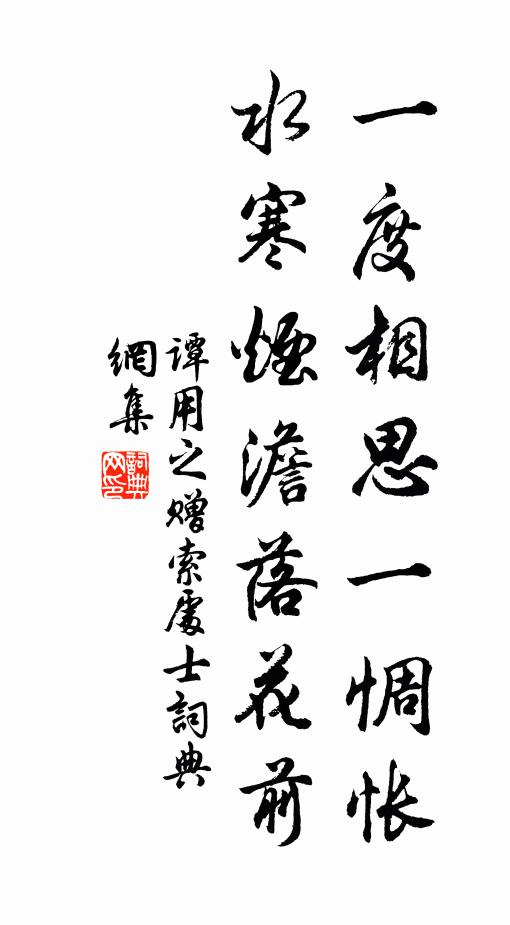 一度相思一惆怅
水寒煙澹落花前
谭用之赠索處士詞典
網集
詞典网印